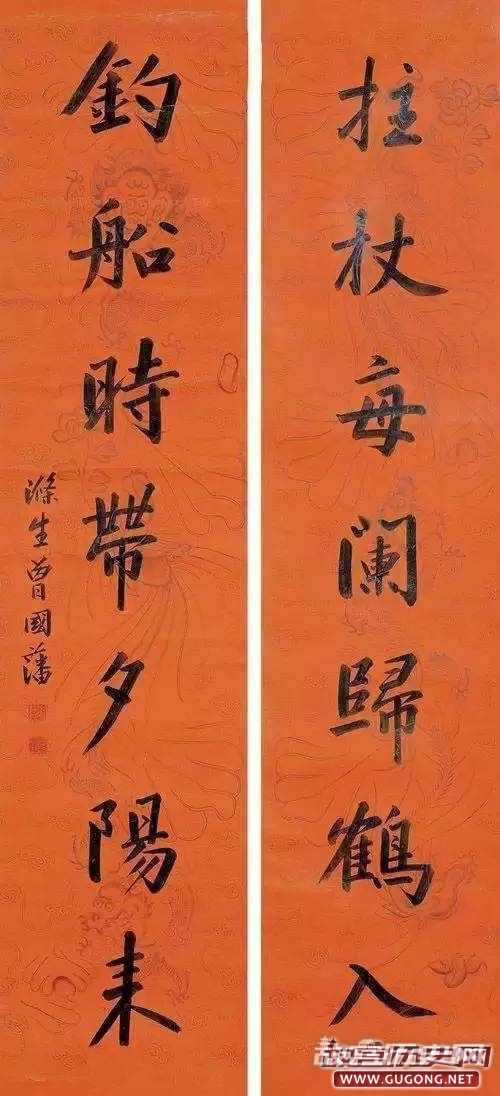 拄杖每闌歸鶴入
釣船時帶夕陽来
滌生曾國藩
故宫历史网
WWW.GUGONG.NET